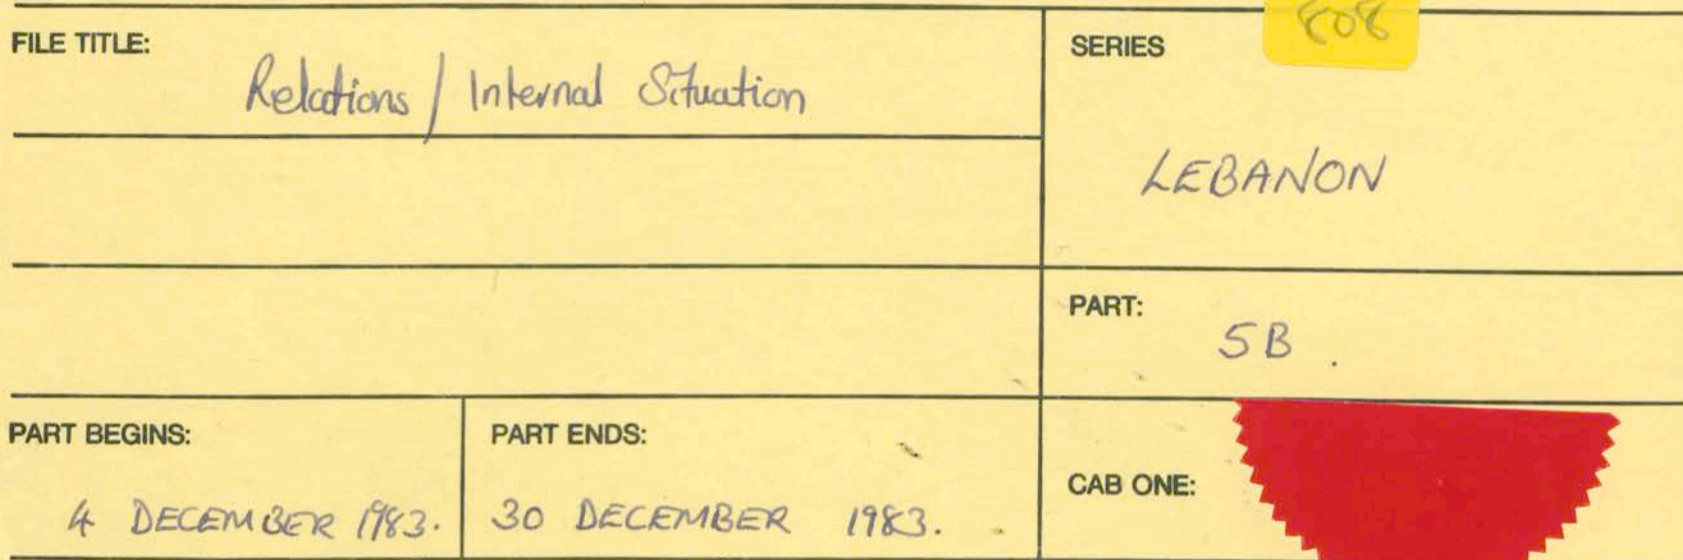 FILE TITLE:
Relations / Internal Situation
SERIES
LEBANON
PART:
5B.
PART BEGINS:
4 DECEMBER 1983.
PART ENDS:
30 DECEMBER 1983.
CAB ONE: